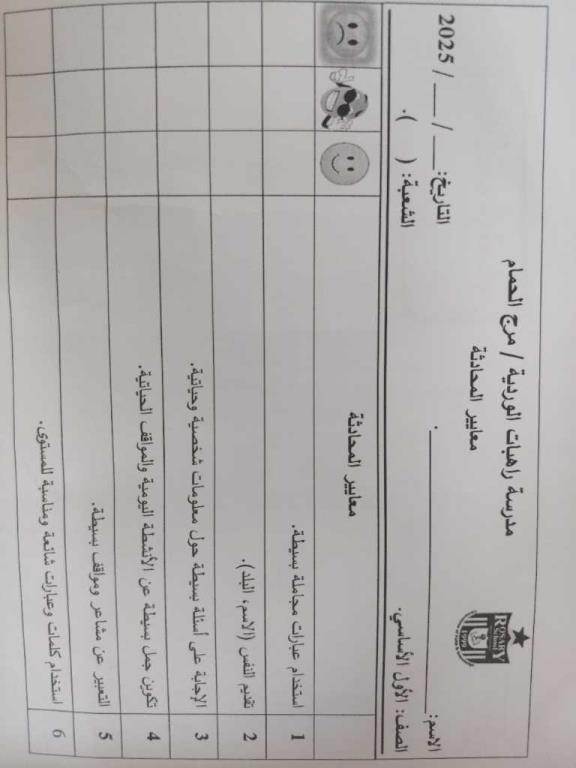 مدرسة راهبات الوردية / مرج الحمام
معايير المحادثة
ROSARY
الاسم: ______________________.
التاريخ: ___ / ___ / 2025
الصف: الأول الأساسي.
الشعبة: (   ).
معايير المحادثة
1 استخدام عبارات مجاملة بسيطة.
2 تقديم النفس (الاسم، البلد).
3 الإجابة على أسئلة بسيطة حول معلومات شخصية وحياتية.
4 تكوين جمل بسيطة عن الأنشطة اليومية والمواقف الحياتية.
5 التعبير عن مشاعر ومواقف بسيطة.
6 استخدام كلمات وعبارات شائعة ومناسبة للمستوى.